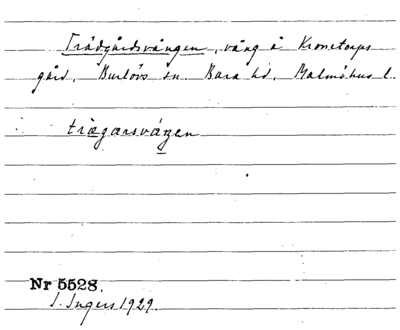 Trädgårdsvången, vång å Kronetorps
gård, Burlövs sn. Bara hd, Malmöhus l.
trägarsváŋen
Nr 5528.
I. Ingers 1929.